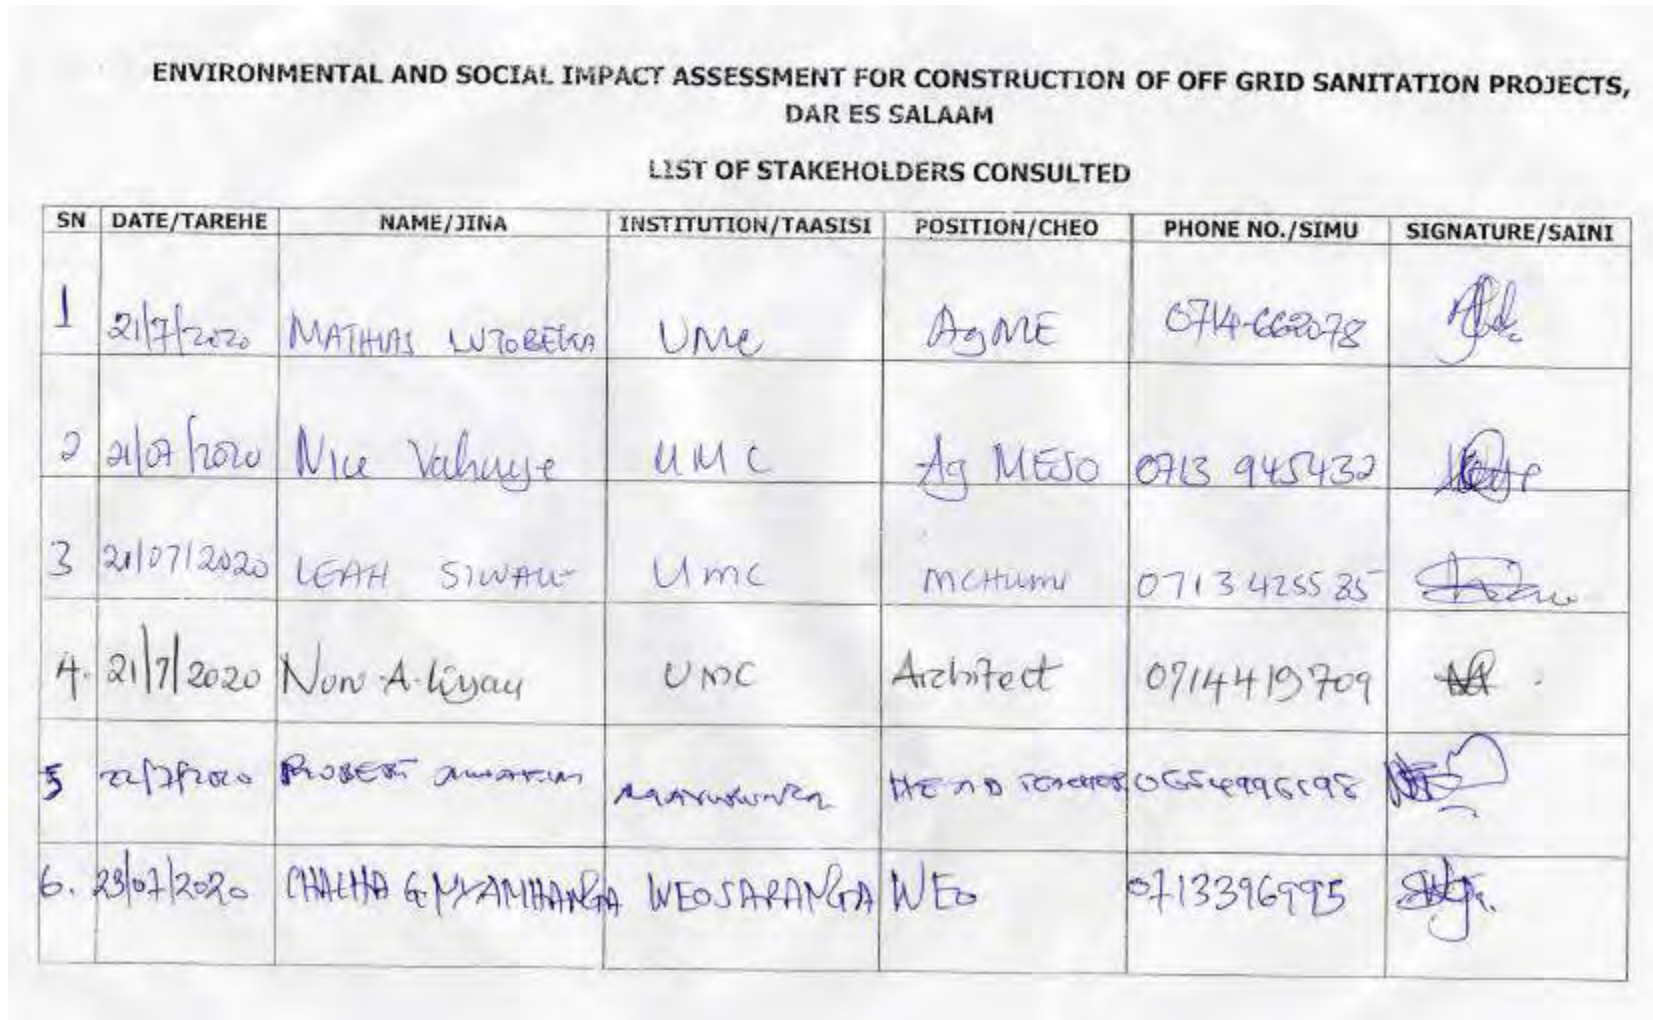 ENVIRONMENTAL AND SOCIAL IMPACT ASSESSMENT FOR CONSTRUCTION OF OFF GRID SANITATION PROJECTS,
DAR ES SALAAM
LIST OF STAKEHOLDERS CONSULTED
SN DATE/TAREHE NAME/JINA INSTITUTION/TAASISI POSITION/CHEO PHONE NO./SIMU SIGNATURE/SAINI
1 21/7/2020 MATHIAS UMC AgME 0714-662078
2 21/07/2020 Nice UMC Ag MESO 0713 945432
3 21/07/2020 LEAH UMC MCHUMI 0713 4255 85
4. 21/7/2020 UMC Architect 0714419709
5 22/7/2020 ROBERT HEAD TEACHER
6. 23/07/2020 CHACHA G NYAMHANGA WEO SARANGA WEO 0713396995